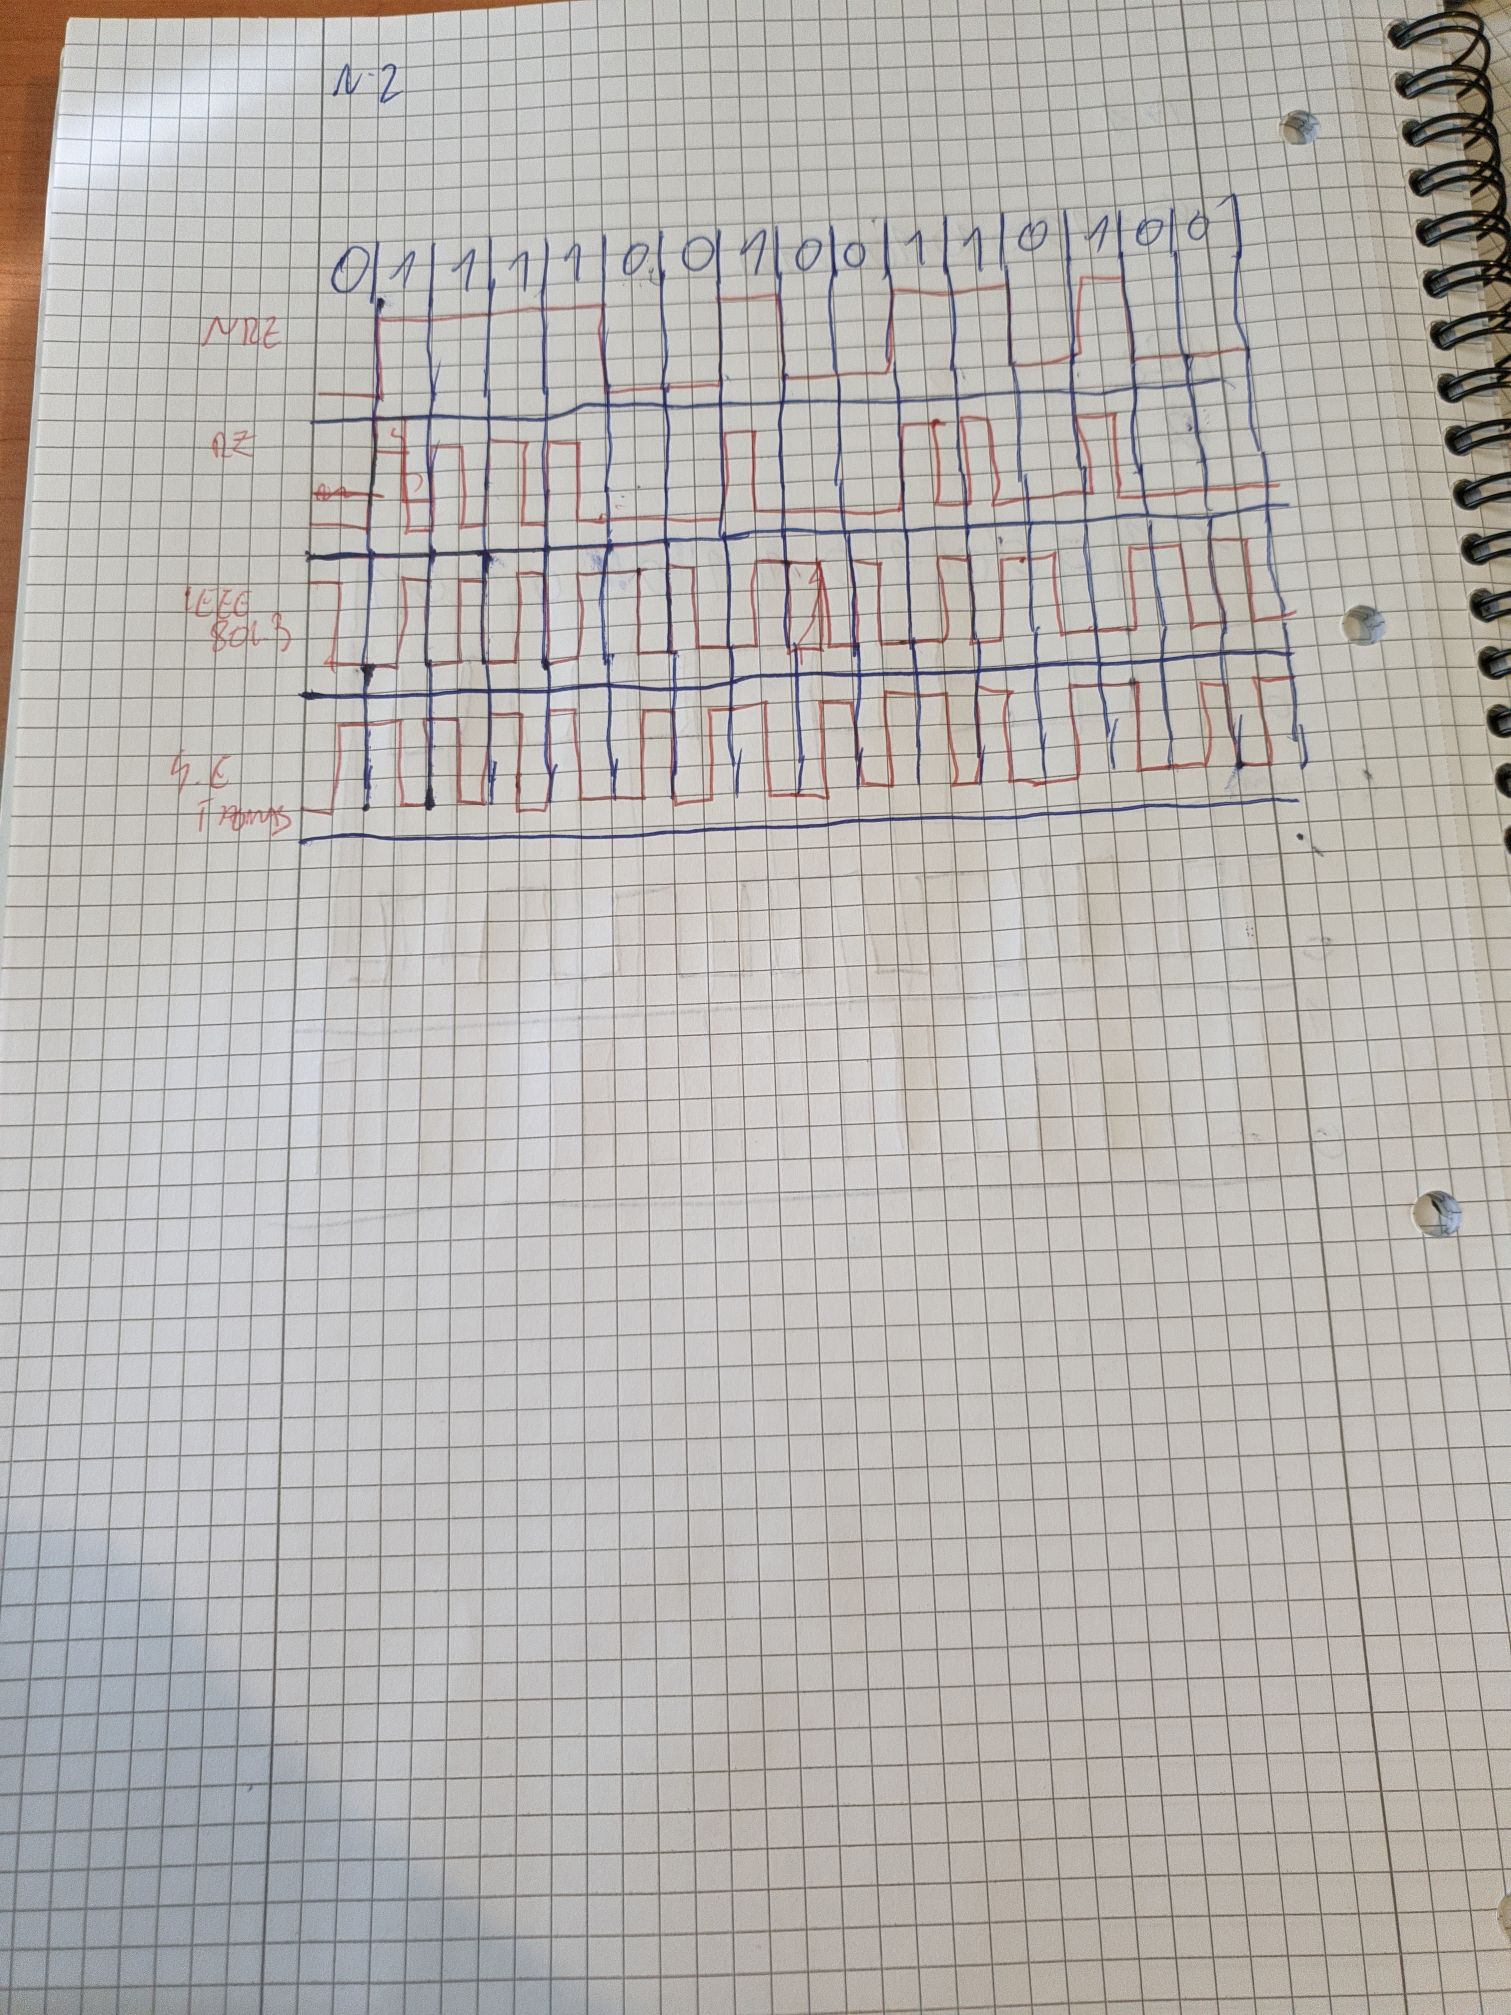 N-2
0|1|1|1|1|0|0|1|0|0|1|1|0|1|0|0|
NRZ
RZ
IEEE
802.3
G.E
THOMAS